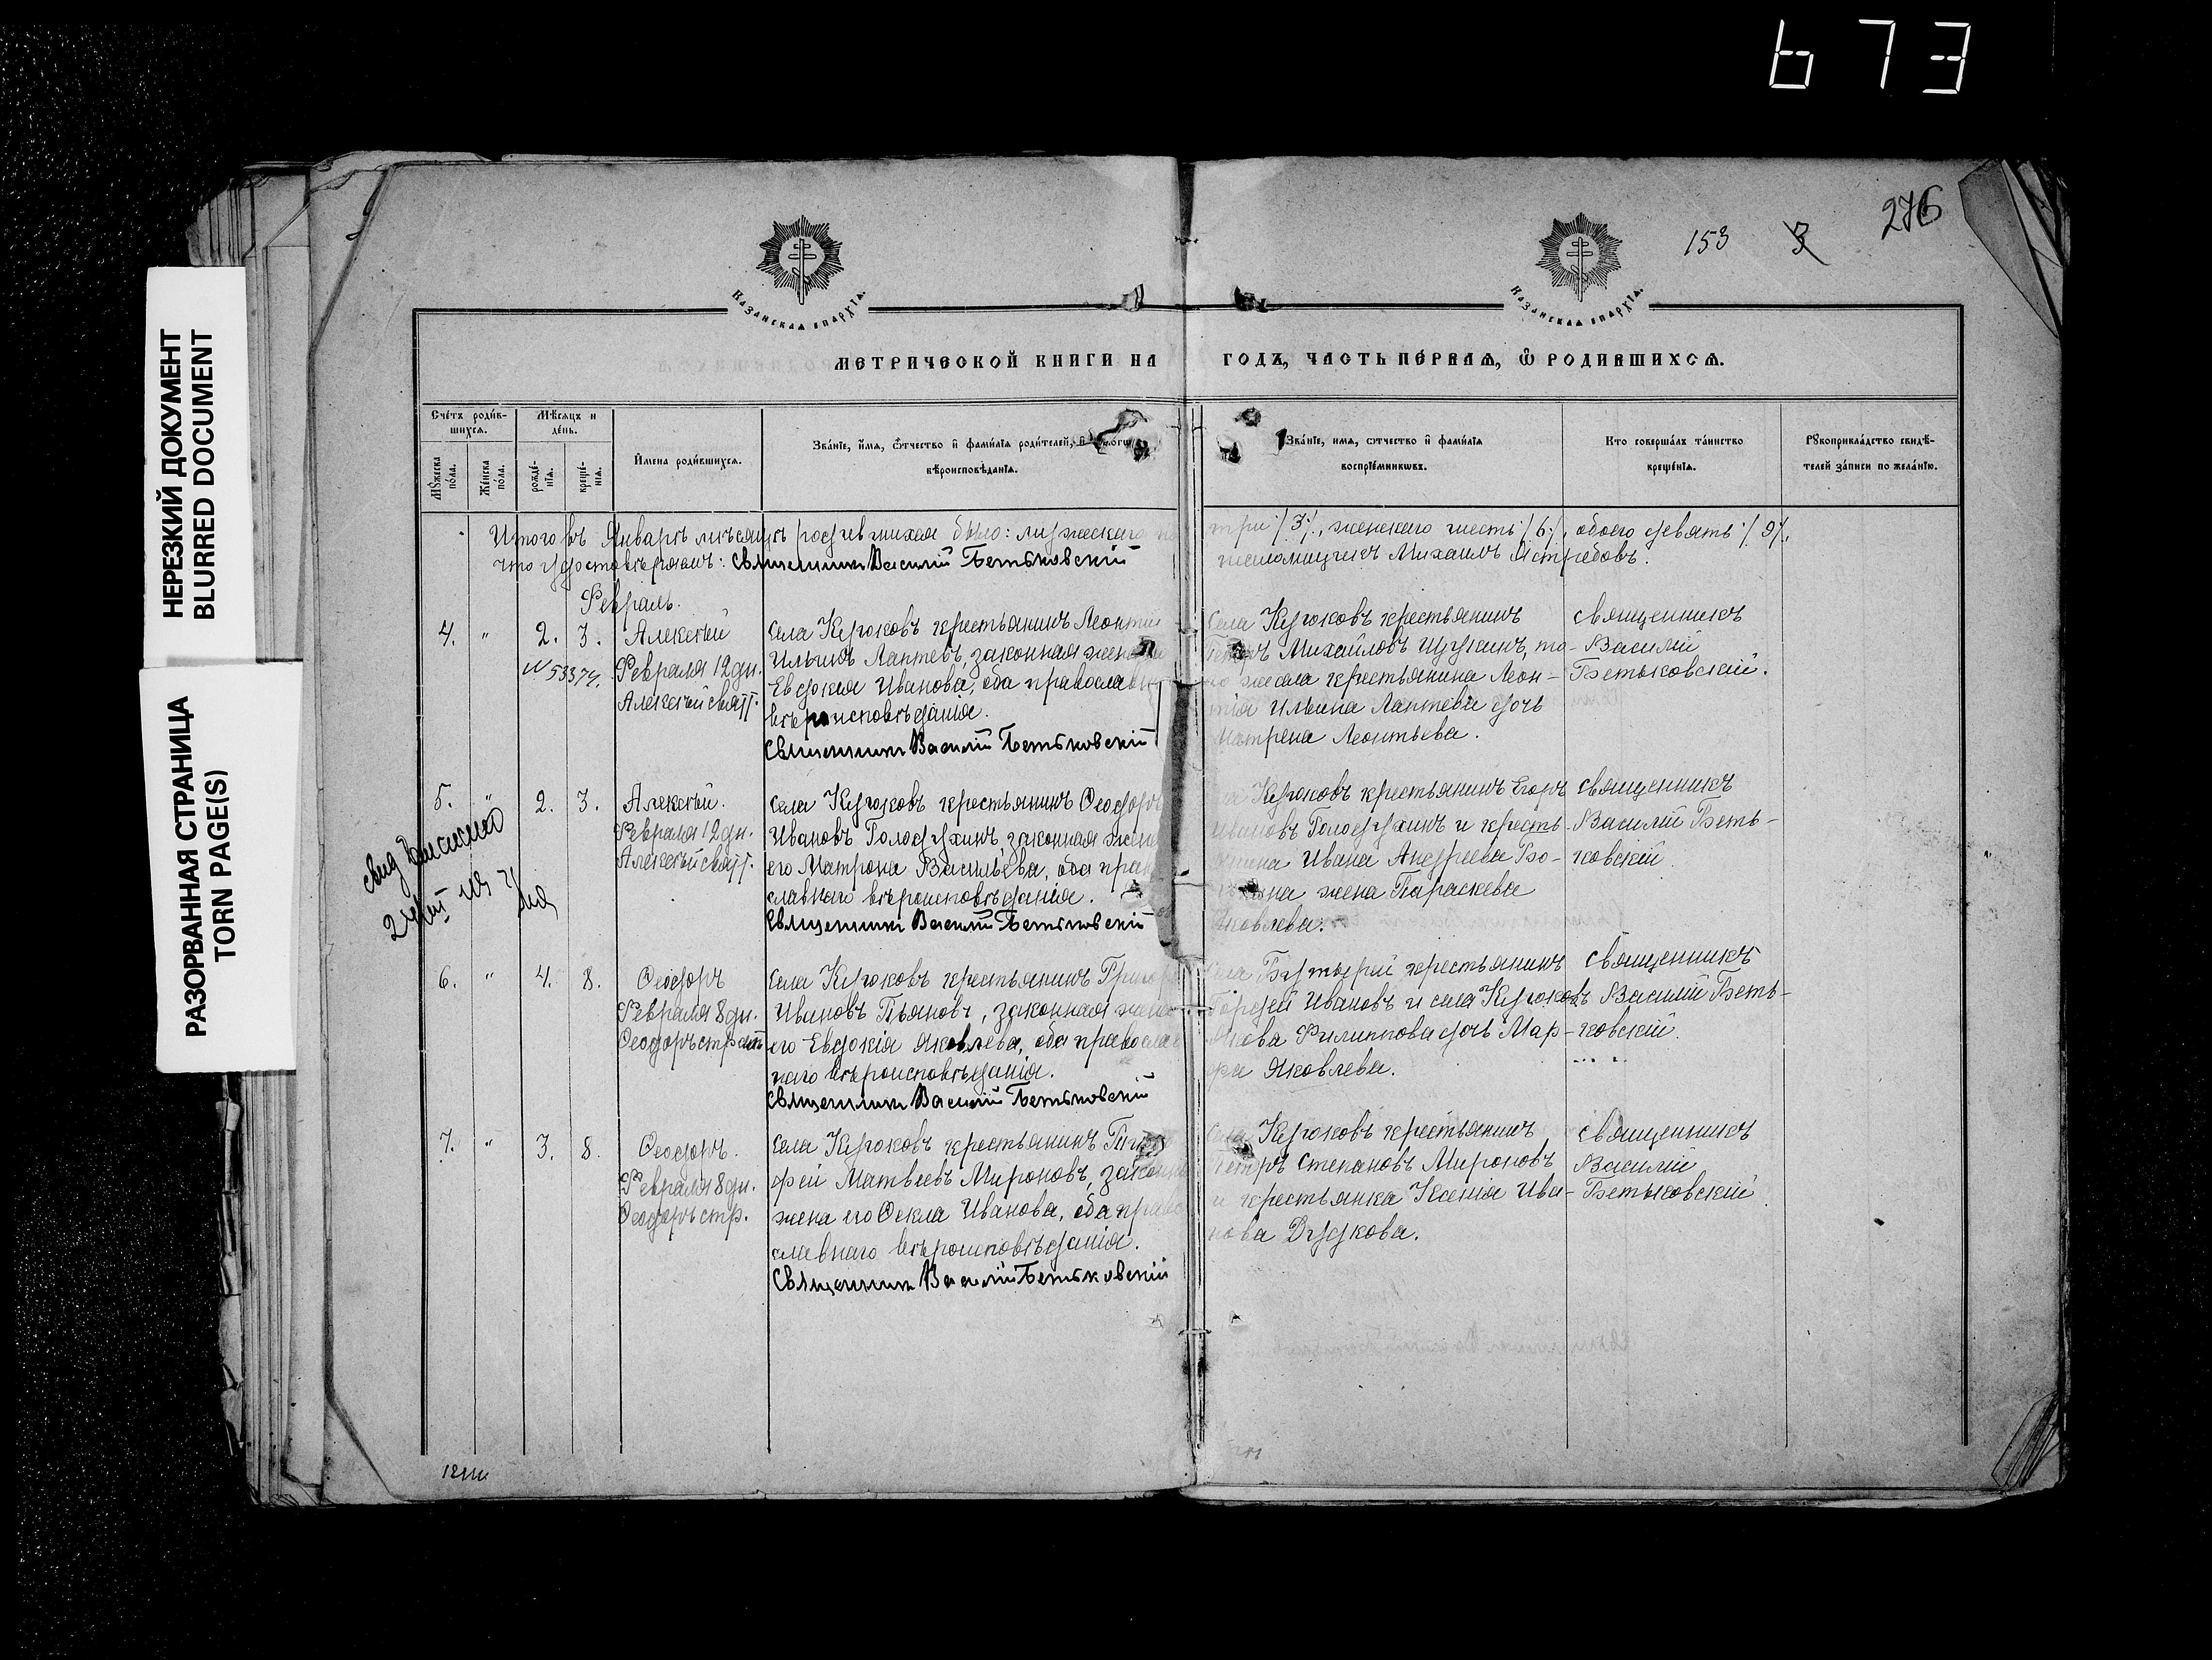 673
НЕРЕЗКИЙ ДОКУМЕНТ
BLURRED DOCUMENT
РАЗОРВАННАЯ СТРАНИЦА
TORN PAGE(S)
153 3 276
Казанская епархїѧ.
Казанская епархїѧ.
МЕТРИЧЕСКОЙ КНИГИ НА ГОДЪ, ЧАСТЬ ПЕ́РВАѦ, Ѽ РОДИВШИХСѦ.
Сче́тъ роди́в-
шихсѧ.
Мѣ́сѧцъ и
де́нь.
Мꙋ́жеска
по́ла.
Же́нска
по́ла.
рожде́-
нїѧ.
креще́-
нїѧ.
И́мена роди́вшихсѧ.
Зва́нїе, и́мѧ, ѻ́тчество и҆ фами́лїѧ роди́телей, и҆
вѣроисповѣ́данїѧ.
Зва́нїе, имѧ, ѻтчество и҆ фами́лїѧ
воспрїе́мникѡвъ.
Кто соверша́лъ та́инство
креще́нїѧ.
Рꙋкоприкла́дство свидѣ́-
телей за́писи по жела́нїю.
Итого въ Январѣ мѣсяцѣ родившихся было: мужескаго три /3/, женскаго шесть /6/, обоего девять /9/,
что удостовѣряемъ: Священникъ Василій Бетьковскій псаломщикъ Михаилъ Ястребовъ.
Февраль.
4. " 2. 3. Алексѣй
N 53374. Февраля 12 дн.
Алексѣй свят.
Села Курюковъ крестьянинъ Леонтій
Ильинъ Лаптевъ, законная жена
Евдокія Иванова, оба православн
вѣроисповѣданія.
Священникъ Василій Бетьковскій
Села Курюковъ крестьянинъ
Михайловъ Щукинъ, то-
го же села крестьянина Леон-
тія Ильина Лаптева дочь
Матрена Леонтьева.
Священникъ
Василій
Бетьковскій.
5. " 2. 3. Алексѣй.
Февраля 12 дн.
Алексѣй свят.
Села Курюковъ крестьянинъ Ѳеодоръ
Ивановъ Голодухинъ, законная жена
его Матрона Васильева, оба право
славнаго вѣроисповѣданія.
Священникъ Василій Бетьковскій
Курюковъ крестьянинъ Егоръ
Ивановъ Голодухинъ и кресть-
янина Ивана Андреева
жена Параскева
Яковлева.
Священникъ
Василій Беть-
ковскій.
6. " 4. 8. Ѳеодоръ
Февраля 8 дн.
Ѳеодоръ страт.
Села Курюковъ крестьянинъ Григорій
Ивановъ Пьяновъ, законная жена
его Евдокія Яковлева, оба православ
наго вѣроисповѣданія.
Священникъ Василій Бетьковскій
Села Бутырей крестьянинъ
Гордей Ивановъ и села Курюковъ
Якова Филиппова дочь Мар-
фа Яковлева.
Священникъ
Василій Беть-
ковскій.
7. " 3. 8. Ѳеодоръ.
Февраля 8 дн.
Ѳеодоръ стр.
Села Курюковъ крестьянинъ
фей Матвеевъ Мироновъ, законная
жена его Ѳекла Иванова, оба право
славнаго вѣроисповѣданія.
Священникъ Василій Бетьковскій
Села Курюковъ крестьянинъ
Петръ Степановъ Мироновъ
и крестьянка Ксенія Ива-
нова Дудкова.
Священникъ
Василій
Бетьковскій